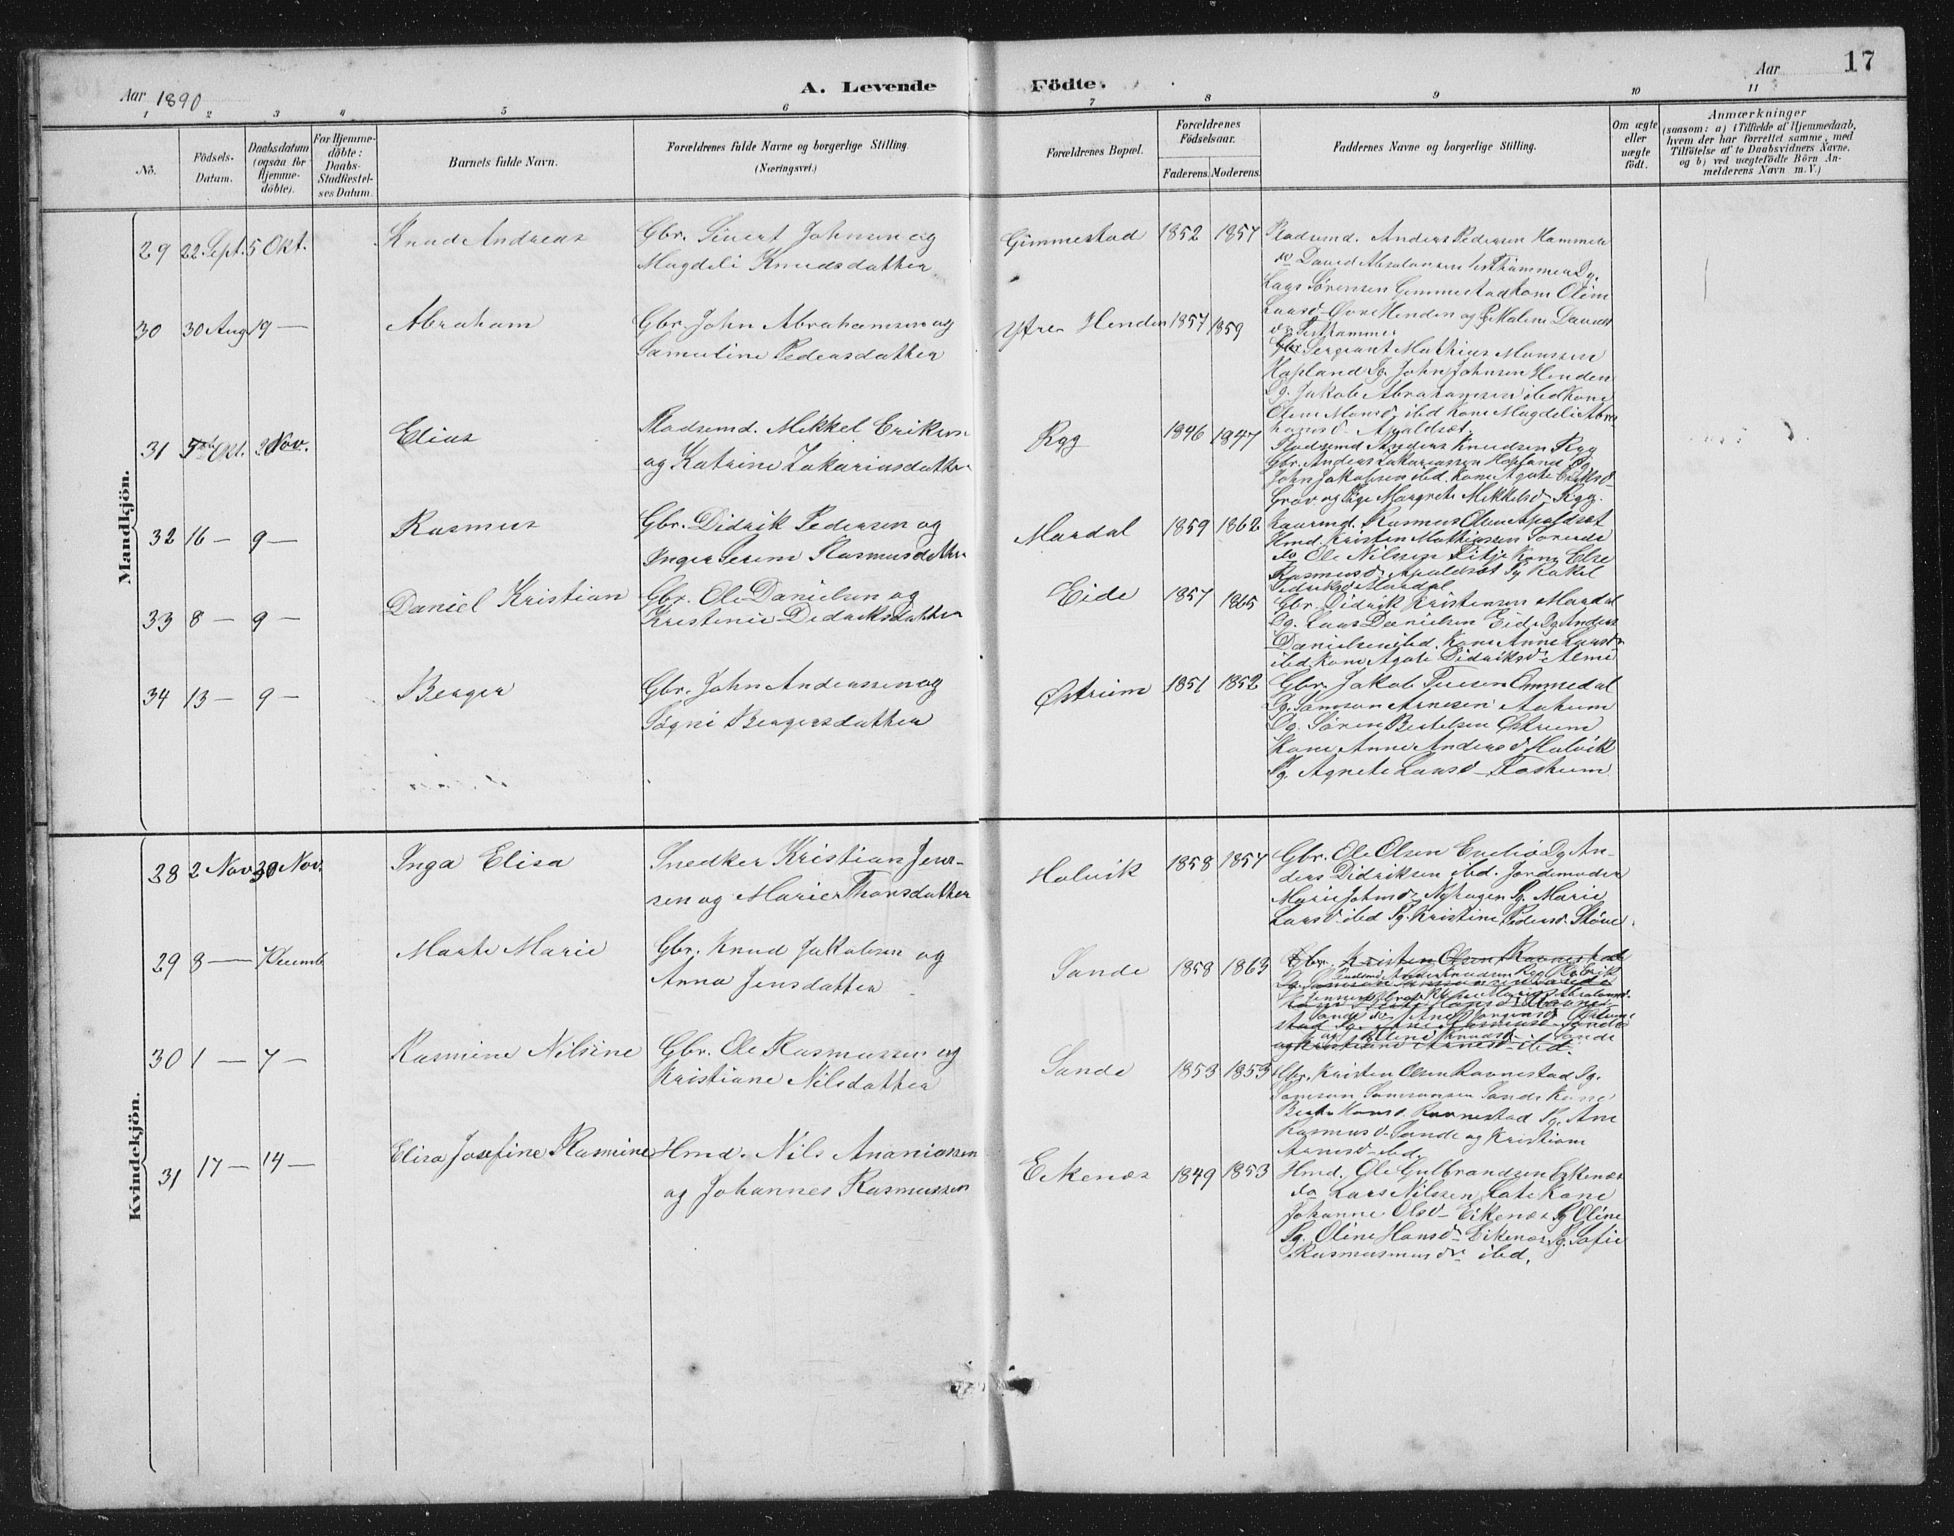 17
Aar 1890
A. Levende Födte.
Aar
1 2 3 4 5 6 7 8 9 10 11
No.
Födsels-Datum.
Daabsdatum (ogsaa for Hjemme-döbte).
For Hjemme-döbte: Daabs-Stadfæstel-ses Datum.
Barnets fulde Navn.
Forældrenes fulde Navne og borgerlige Stilling. (Næringsvei.)
Forældrenes Bopæl.
Forældrenes Födselsaar.
Faderens. Moderens.
Faddernes Navne og borgerlige Stilling.
Om ægte eller uægte födt.
Anmærkninger
(saasom: a) i Tilfælde af Hjemmedaab,
hvem der har forrettet samme, med
Tilföielse af to Daabsvidners Navne,
og b) ved uægtefödte Börn An-
melderens Navn m. V.)
Mandkjön.
29 22 Sept. 5 Okt. Knud Andreas
Gbr. Sivert Johnsen og
Magdeli Knudsdatter
Gimmestad 1852 1857
Pladsmd. Anders Pedersen Hammer
do David Absalonsen Vesthammer Og.
Lars Sørensen Gimmestad Kone Oline
Larsd Øvre Henden og Pg Malene Davidsd
Vesthammer
30 30 Aug 19 — Abraham
Gbr. John Abrahamsen og
Samueline Pedersdatter
Ytre Henden 1857 1859
Sergeant Mathias Monssen
Hopland Og. John Johnsen Henden
Og. Jakob Abrahamsen ibd Kone
Oline Monsd. ibd Kone Magdeli Abra
hamsd Apaldset.
31 Okt. 2 Nov. Elias
Pladsmd. Mikkel Eriksen
og Katrine Zakariasdatter
Rygg 1846 1847
Pladsmd Anders Knudsen Rygg
Gbr. Anders Zakariassen Hopland Og
John Jakobsen ibd. Kone Agate Eriksd
Grov og Pige Margrete Mikkelsd Rygg.
32 16 — 9 — Rasmus
Gbr. Didrik Pedersen og
Inger Serine Rasmusdatter
Mardal 1859 1862
Kaarmd. Rasmus Olsen Apaldset
Hmd. Kristen Mathiassen Søreide
do Ole Nilssen Fitje Kone Else
Rasmusd Apaldset Pg Rakel
Didriksd Mardal
33 8 — 9 — Daniel Kristian
Gbr. Ole Danielsen og
Kristine Didriksdatter
Eide 1857 1865
Gbr. Didrik Kristensen Mardal
Og. Lars Danielsen Eide Og Anders
Danielsen ibd. Kone Anne Larsd
ibd Kone Agate Didriksd Alme
34 13 — 9 — Berger
Gbr. John Anderssen og
Søgni Bergersdatter
Østrem 1851 1852
Gbr. Jakob Ommedal
Og. Samson Arnesen Aaheim
Og. Søren Bertelsen Østrem
Kone Anne Andersd Holvik
Pg. Agnete Larsd Taskem
Kvindekjön.
28 2 Nov. 30 Nov. Inga Elisa
Snedker Kristian Jens-
sen og Marie Thorsdatter
Holvik 1858 1857
Gbr. Ole Olsen Evebø Og An-
ders Didriksen ibd. Jordemoder
Marie Johnsd Nyhagen Pg. Marie
Larsd ibd Pg. Kristine Pedersd Støve
29 8 — 7 Decemb Marte Marie
Gbr. Knud Jakobsen og
Anna Jensdatter
Sande 1858 1863
Gbr. Kristen Olsen Ravnestad
30 1 — 7 — Rasmine Nilsine
Gbr. Ole Rasmussen og
Kristiane Nilsdatter
Sande 1853 1853
Gbr. Kristen Olsen Ravnestad Og.
Samson Samsonsen Sande Kone
Berte Hansd. Ravnestad Pg. Ane
Rasmusd Sande og Kristiane
Arnesd ibd.
31 17 — 14 — Elisa Josefine Rasmine
Hmd. Nils Ananiassen
og Johannes Rasmussen
Eikenæs 1849 1853
Hmd. Ole Gulbrandsen Eikenæs
do Lars Nilssen Late Kone
Johanne Olsd Eikenæs Pg Oline
Pg. Oline Hansd Eikenæs Pg. Sofie
Rasmusmusd ibd.